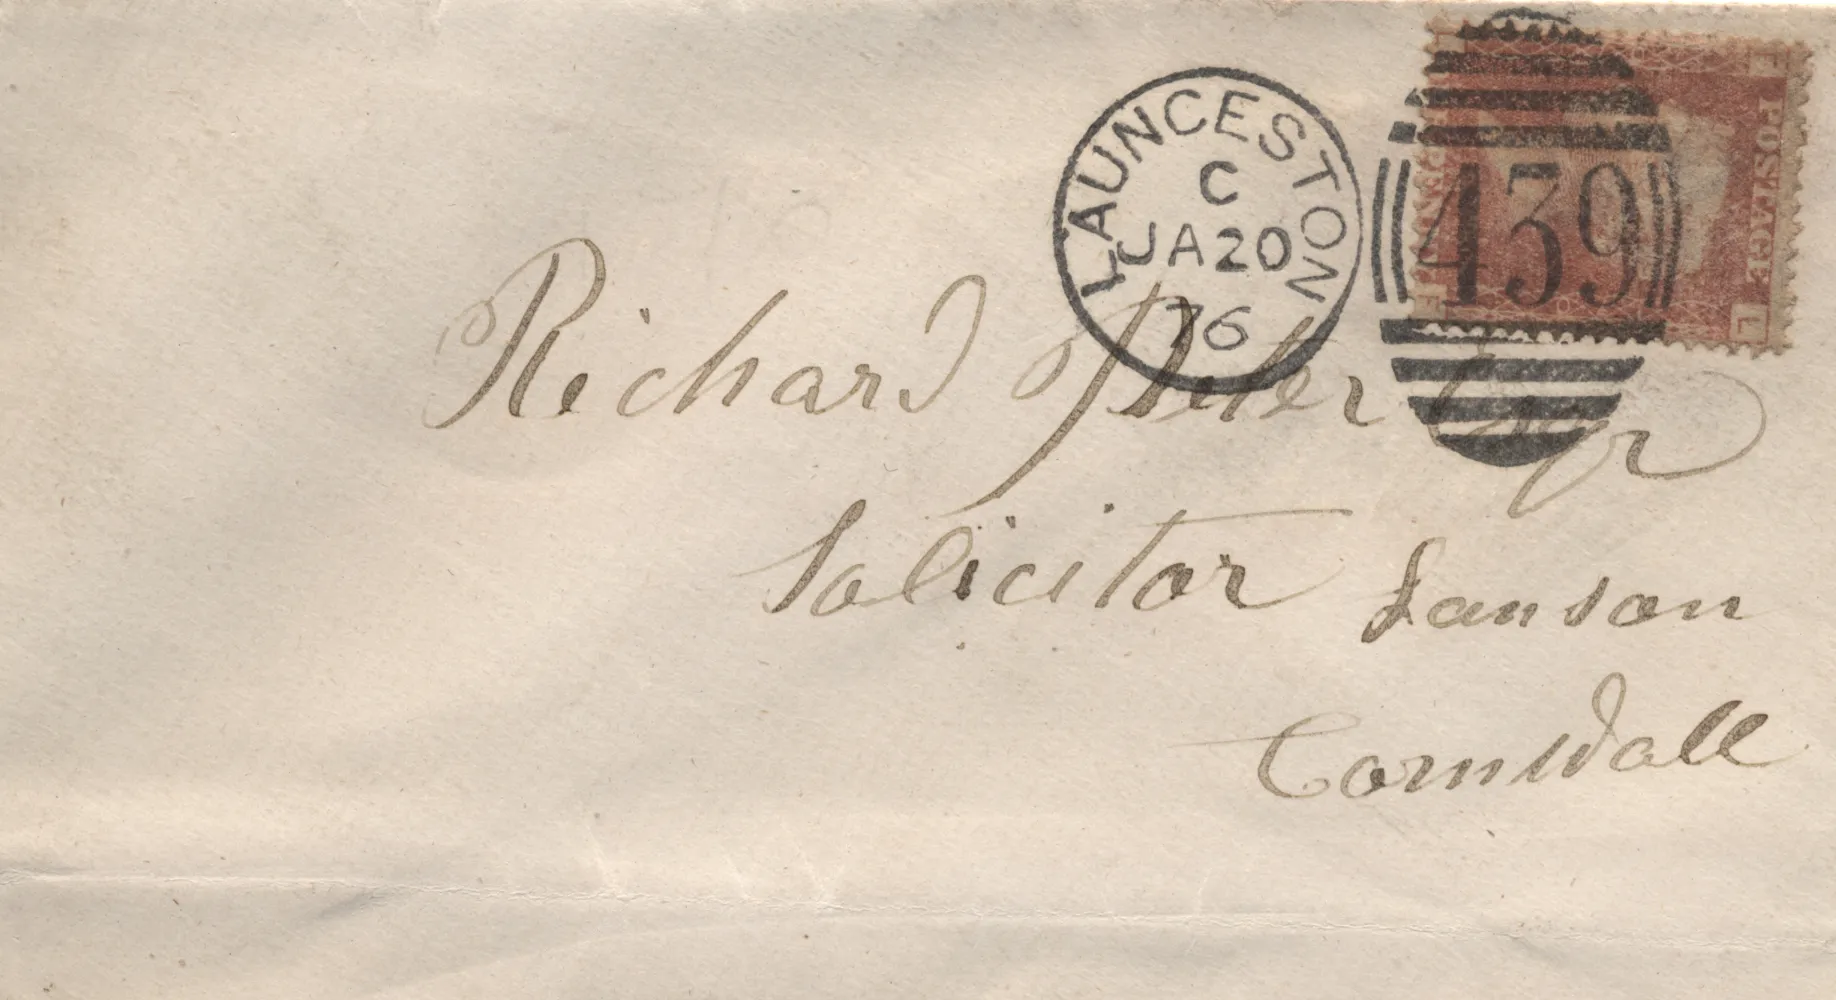 LAUNCESTON
C
JA 20
76
439
POSTAGE
F
L
Richard Peter Esqr
Solicitor Lanson
Cornwall